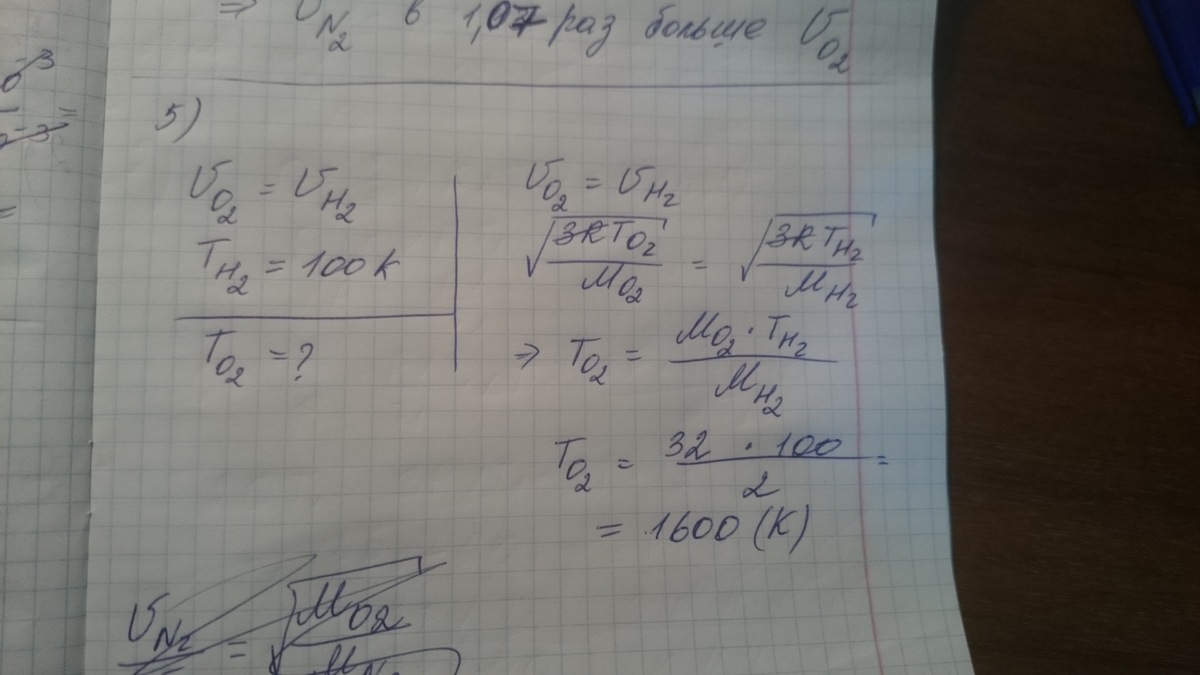 ⇒ υ_N₂ в 1,07 раз больше υ_O₂
5)
υ_O₂ = υ_H₂
T_H₂ = 100 K
T_O₂ = ?
υ_O₂ = υ_H₂
√(3RT_O₂ / M_O₂) = √(3RT_H₂ / M_H₂)
⇒ T_O₂ = M_O₂ · T_H₂ / M_H₂
T_O₂ = 32 · 100 / 2 =
= 1600 (K)
υ_N₂ = √(M_O₂ / M_N₂